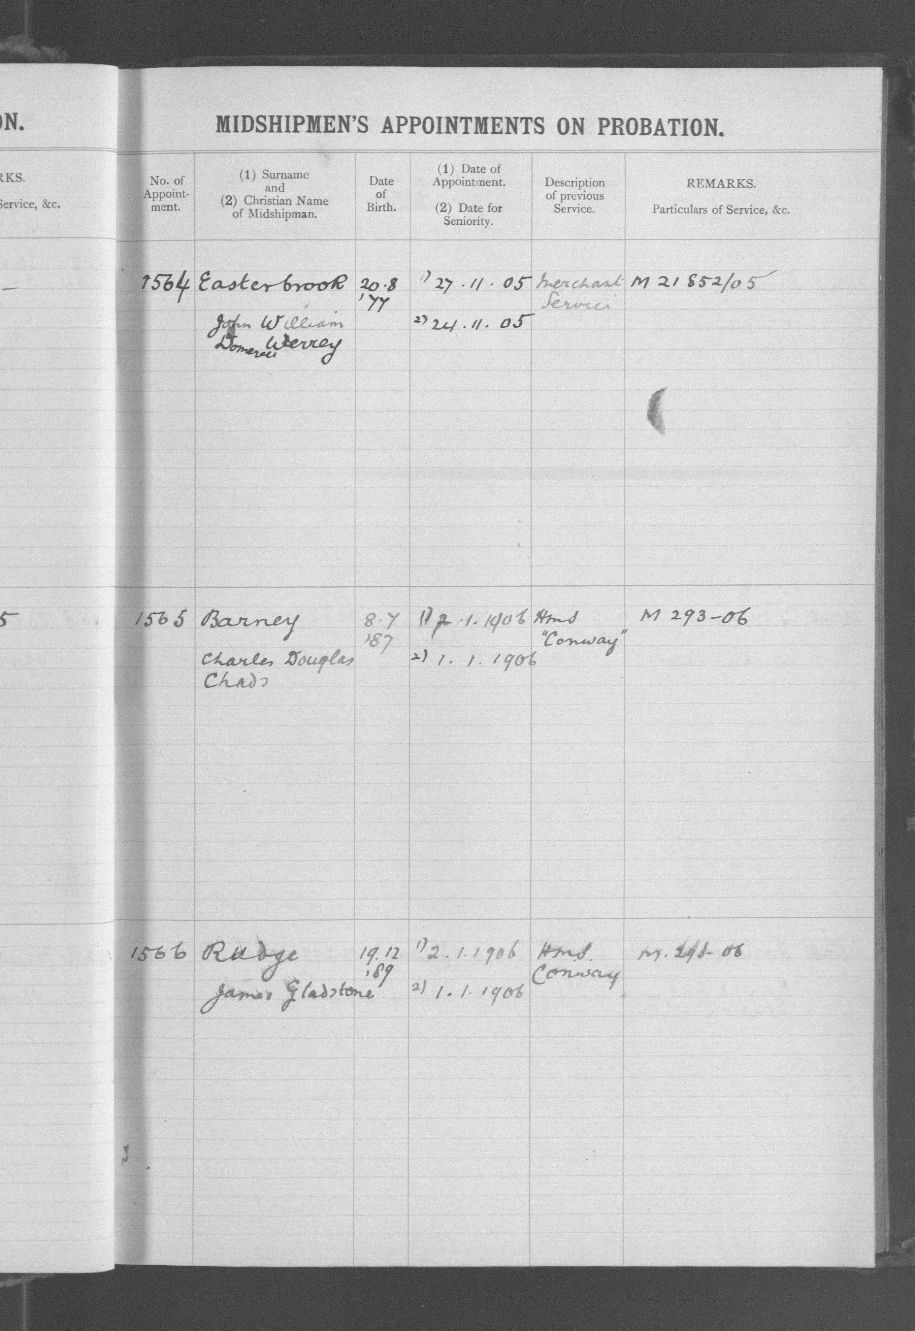 ON.
RKS.
Service, &c.
5
MIDSHIPMEN'S APPOINTMENTS ON PROBATION.
No. of
Appoint-
ment.
(1) Surname
and
(2) Christian Name
of Midshipman.
Date
of
Birth.
(1) Date of
Appointment.
(2) Date for
Seniority.
Description
of previous
Service.
REMARKS.
Particulars of Service, &c.
1564 Easterbrook 20.8 1) 27.11.05 Merchant M 21852/05
'77 Service
John William 2) 24.11.05
Werrey
1565 Barney 8.7 1) 2.1.1906 Hms M 293-06
'87 "Conway"
Charles Douglas 2) 1.1.1906
Chads
1566 Rudge 19.12 1) 2.1.1906 HMS. M. 293-06
'89 Conway
James Gladstone 2) 1.1.1906